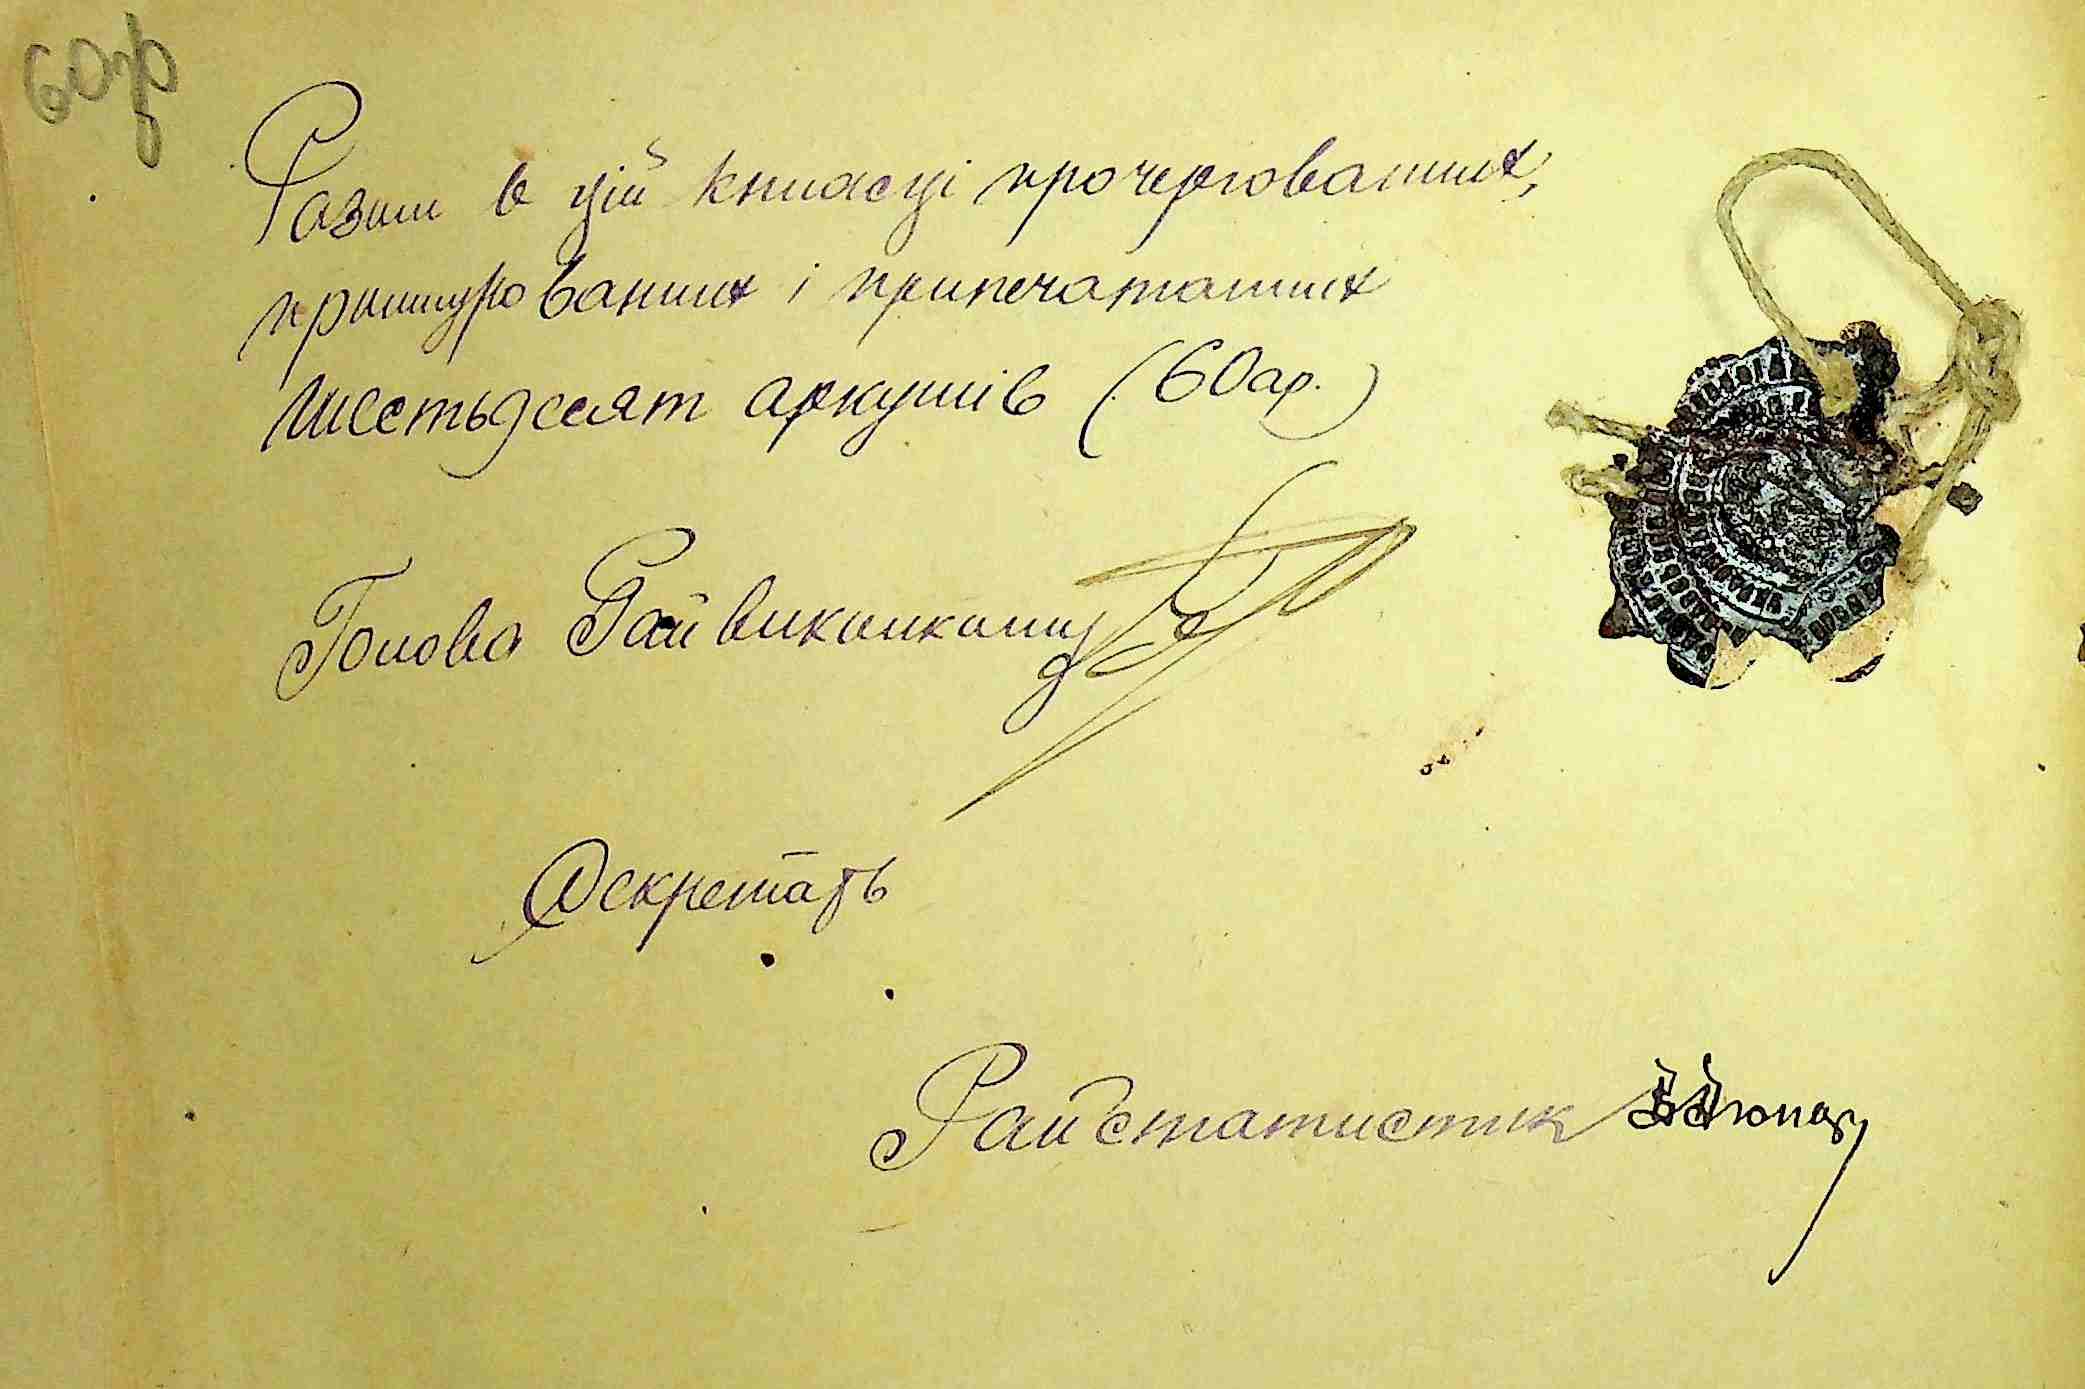 60ар
Разом в цій книжці прочергованих,
пришнурованих і припечатаних
шестьдесят аркушів (60 ар.)
Голова Райвиконкому
Секретарь
Райстатистик